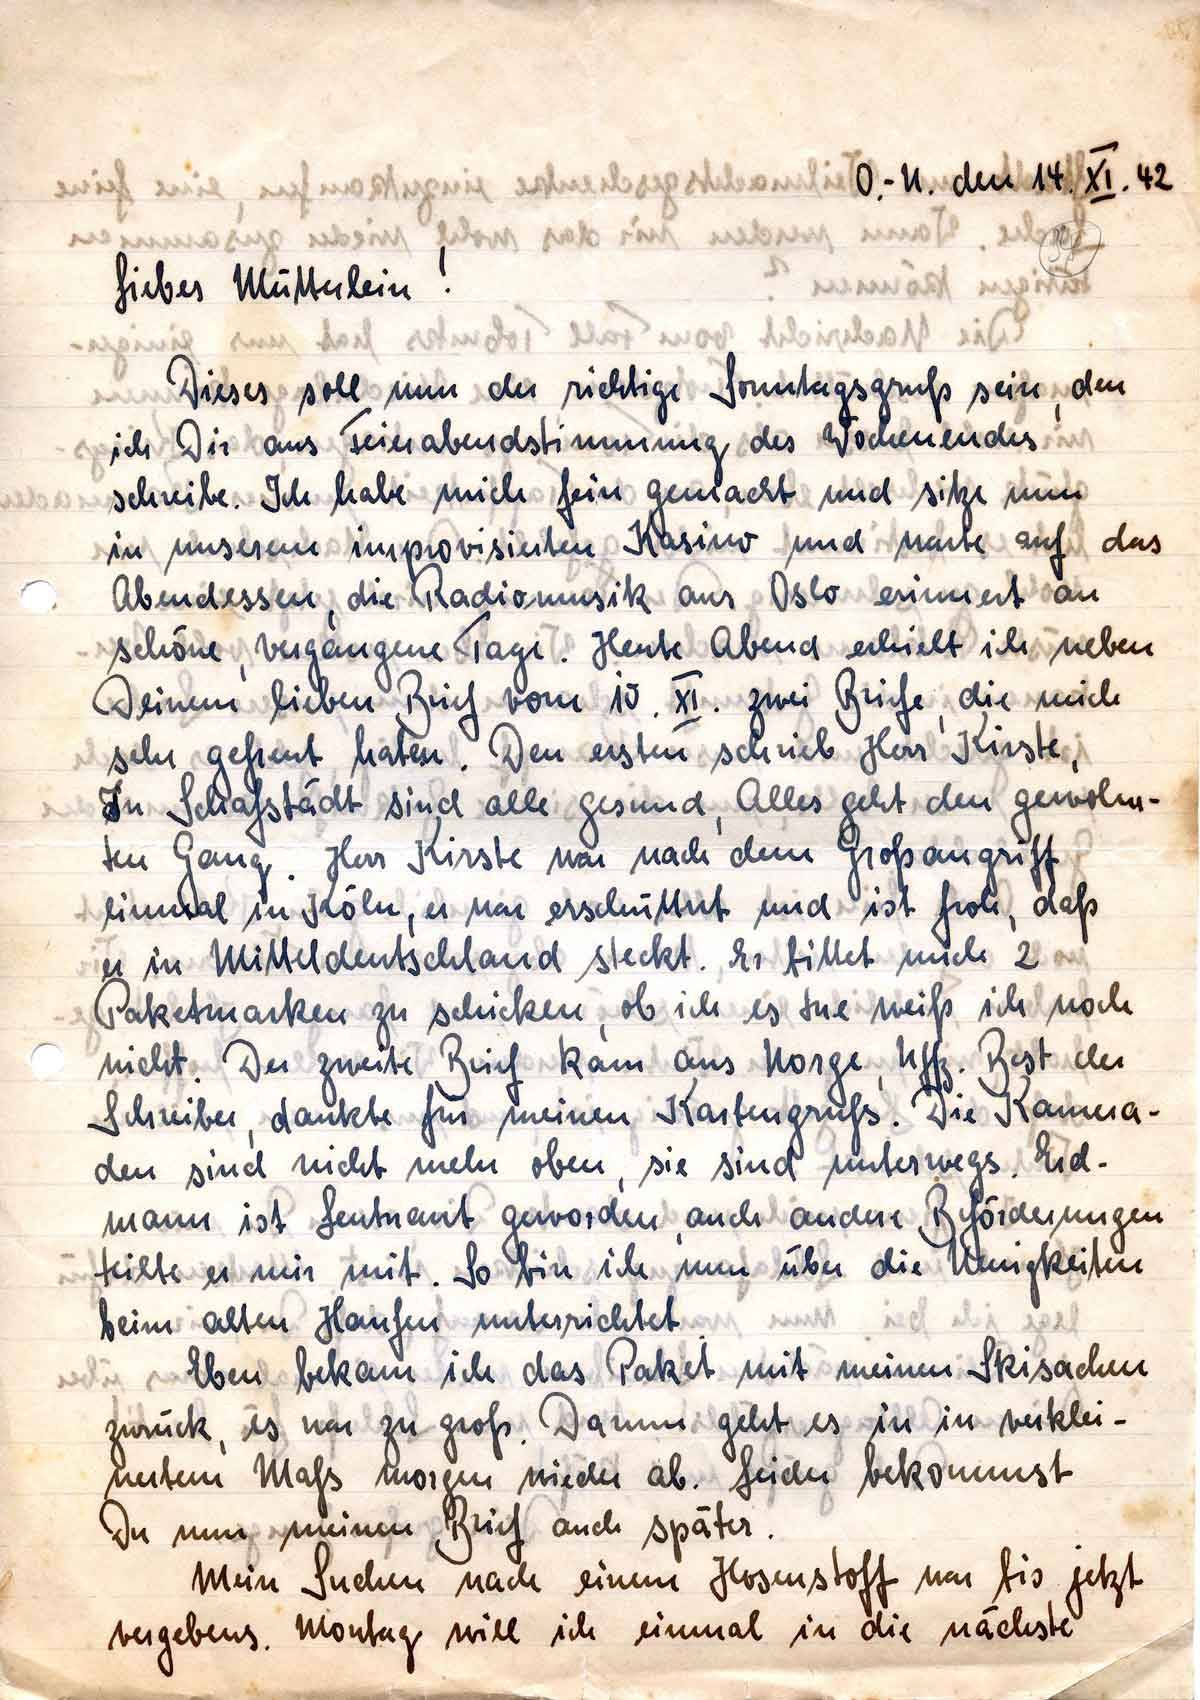 O.-U. den 14. XI. 42
Liebes Mütterlein!
Dieses soll nun der richtige Sonntagsgruß sein, den
ich Dir aus Feierabendstimmung des Wochenendes
schreibe. Ich habe mich fein gemacht und sitze nun
in unserem improvisierten Kasino und warte auf das
Abendessen, die Radiomusik aus Oslo erinnert an
schöne, vergangene Tage. Heute Abend erhielt ich neben
Deinem lieben Brief vom 10. XI. zwei Briefe, die mich
sehr gefreut haben. Den ersten schrieb Herr Kirste,
In Schafstädt sind alle gesund, Alles geht den gewohn-
ten Gang. Herr Kirste war nach dem Großangriff
einmal in Köln, er war erschüttert und ist froh, daß
er in Mitteldeutschland steckt. Er bittet mich 2
Paketmarken zu schicken, ob ich es tue weiß ich noch
nicht. Der zweite Brief kam aus Norge, Uffz. Best der
Schreiber, dankte für meinen Kartengruß. Die Kamera-
den sind nicht mehr oben, sie sind unterwegs. Erd-
mann ist Leutnant geworden, auch andere Beförderungen
teilte er mir mit. So bin ich nun über die Neuigkeiten
beim alten Haufen unterrichtet.
Eben bekam ich das Paket mit meinen Skisachen
zurück, es war zu groß. Darum geht es in in verklei-
nertem Maß morgen wieder ab. Leider bekommst
Du nun meinen Brief auch später.
Mein Suchen nach einem Hosenstoff war bis jetzt
vergebens. Montag will ich einmal in die nächste